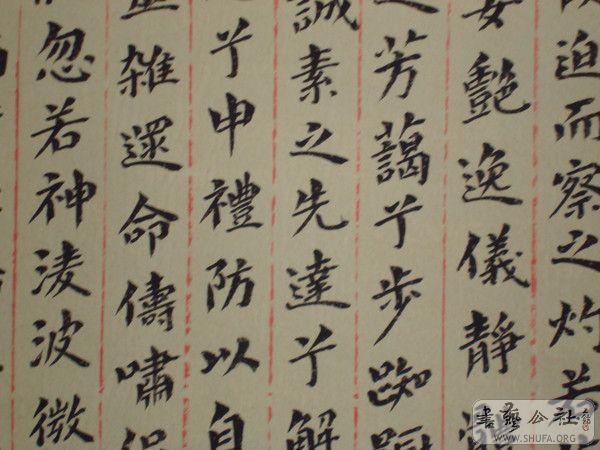 迫而察之灼若
姿艷逸儀靜體
之芳藹兮步踟躕
誠素之先達兮解
兮申禮防以自
雜遝命儔嘯侶
忽若神淩波微
書藝公社
WWW.SHUFA.ORG